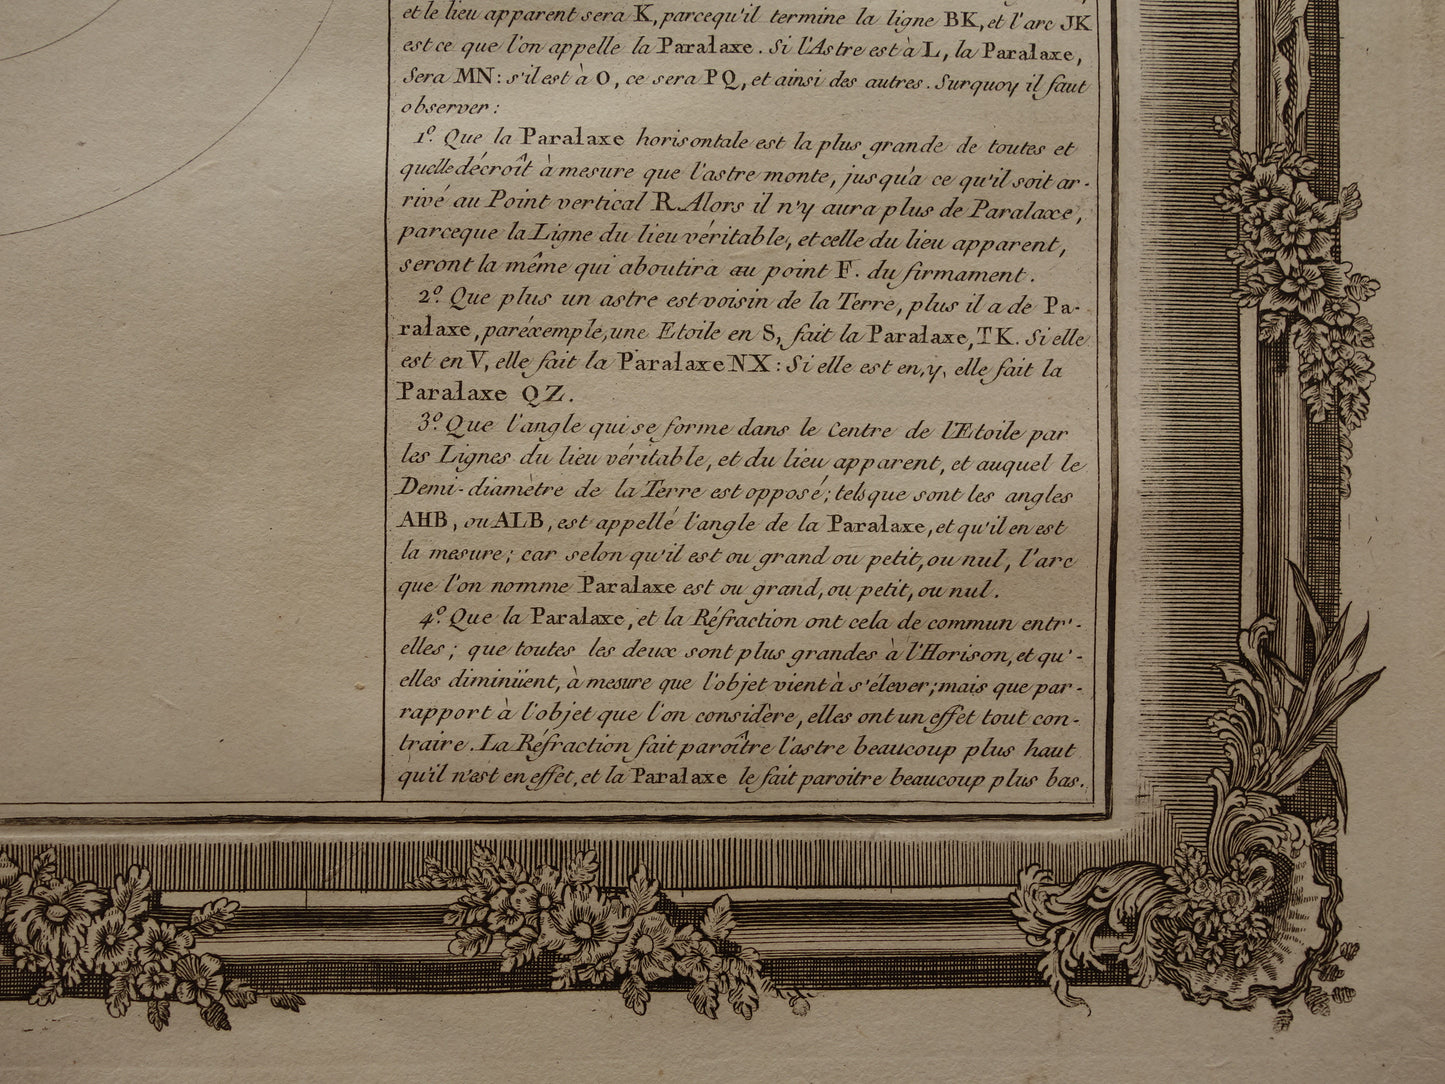 et le lieu apparent sera K, parcequ'il termine la ligne BK, et l'arc JK
est ce que l'on appelle la Paralaxe. Si l'Astre est à L, la Paralaxe,
Sera MN: s'il est à O, ce sera PQ, et ainsi des autres. Surquoy il faut
observer:
1º. Que la Paralaxe horisontale est la plus grande de toutes et
quelle décroît à mesure que l'astre monte, jusqu'a ce qu'il soit ar-
rivé au Point vertical R. Alors il n'y aura plus de Paralaxe,
parceque la Ligne du lieu véritable, et celle du lieu apparent,
seront la même qui aboutira au point F. du firmament.
2º. Que plus un astre est voisin de la Terre, plus il a de Pa-
ralaxe, paréxemple, une Etoile en S, fait la Paralaxe, TK. Si elle
est en V, elle fait la Paralaxe NX: Si elle est en, y, elle fait la
Paralaxe QZ.
3º. Que l'angle qui se forme dans le Centre de l'Etoile par
les Lignes du lieu véritable, et du lieu apparent, et auquel le
Demi-diamètre de la Terre est opposé; tels que sont les angles
AHB, ou ALB, est appellé l'angle de la Paralaxe, et qu'il en est
la mesure; car selon qu'il est ou grand ou petit, ou nul, l'arc
que l'on nomme Paralaxe est ou grand, ou petit, ou nul.
4º. Que la Paralaxe, et la Réfraction ont cela de commun entr'-
elles; que toutes les deux sont plus grandes à l'Horison, et qu'-
elles diminüent, à mesure que l'objet vient à s'élever; mais que par-
rapport à l'objet que l'on considère, elles ont un effet tout con-
traire. La Réfraction fait paroître l'astre beaucoup plus haut
qu'il n'est en effet, et la Paralaxe le fait paroitre beaucoup plus bas.